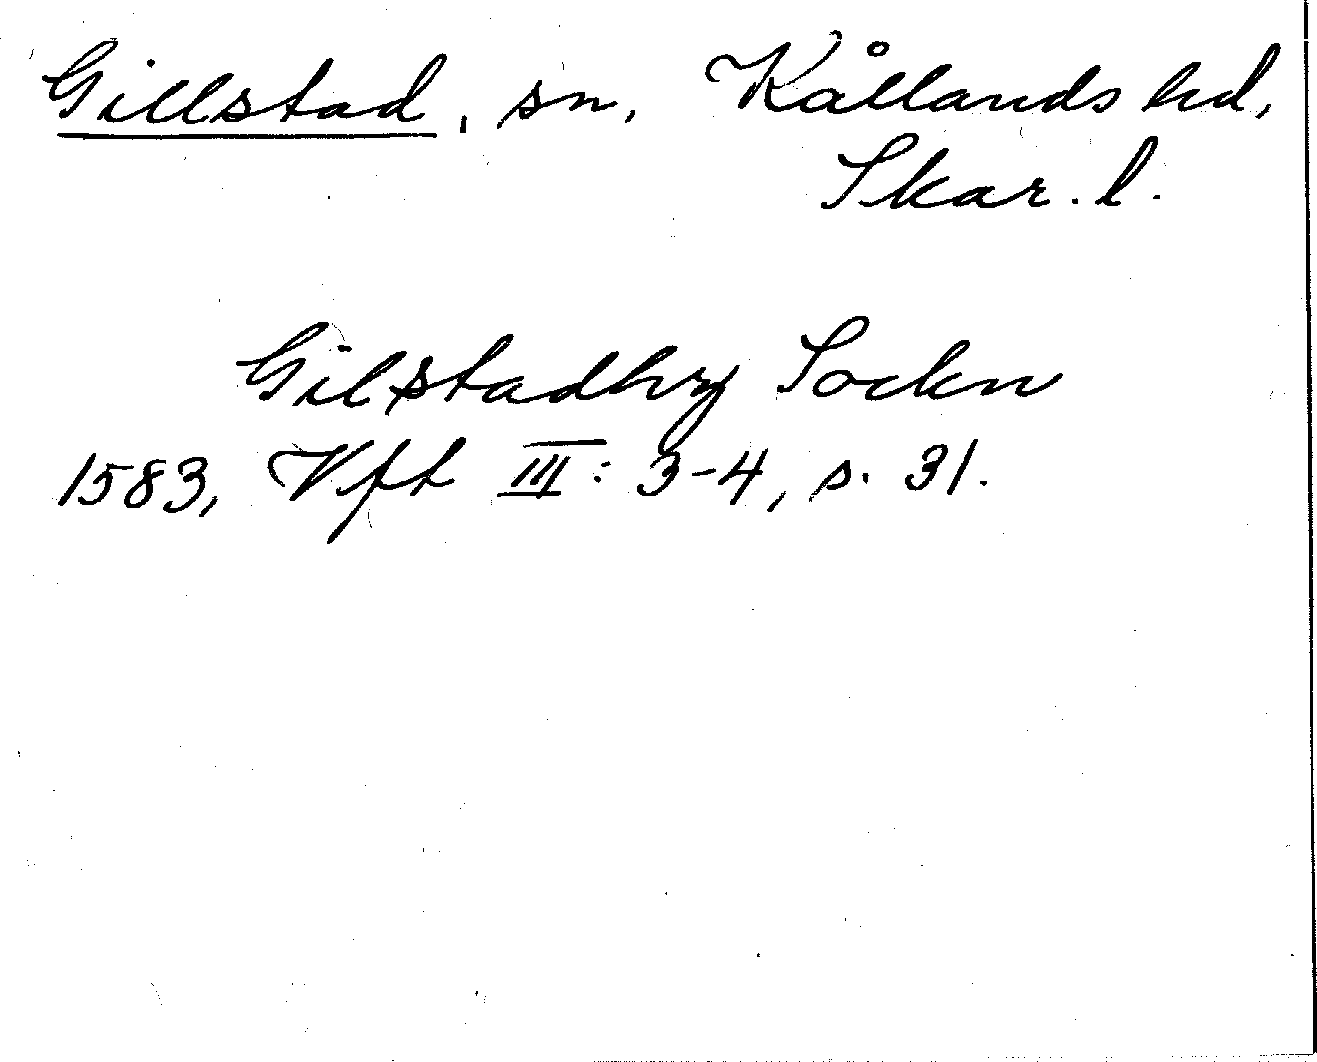 Gillstad, sn, Kållands hd,
Skar. l.
Gilstadhz Sockn
1583, Vft III: 3-4, s. 31.